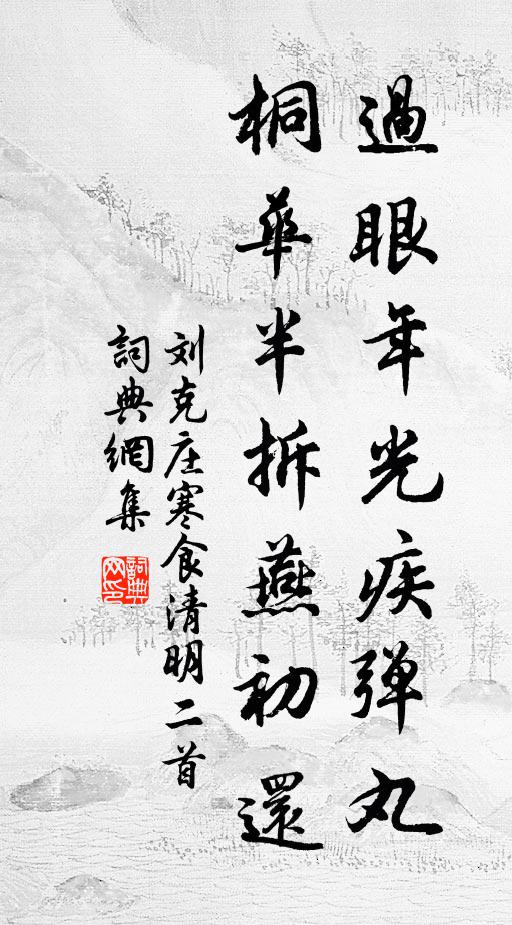 過眼年光疾弹丸
桐華半拆燕初還
刘克庄寒食清明二首
詞典網集
詞典網印